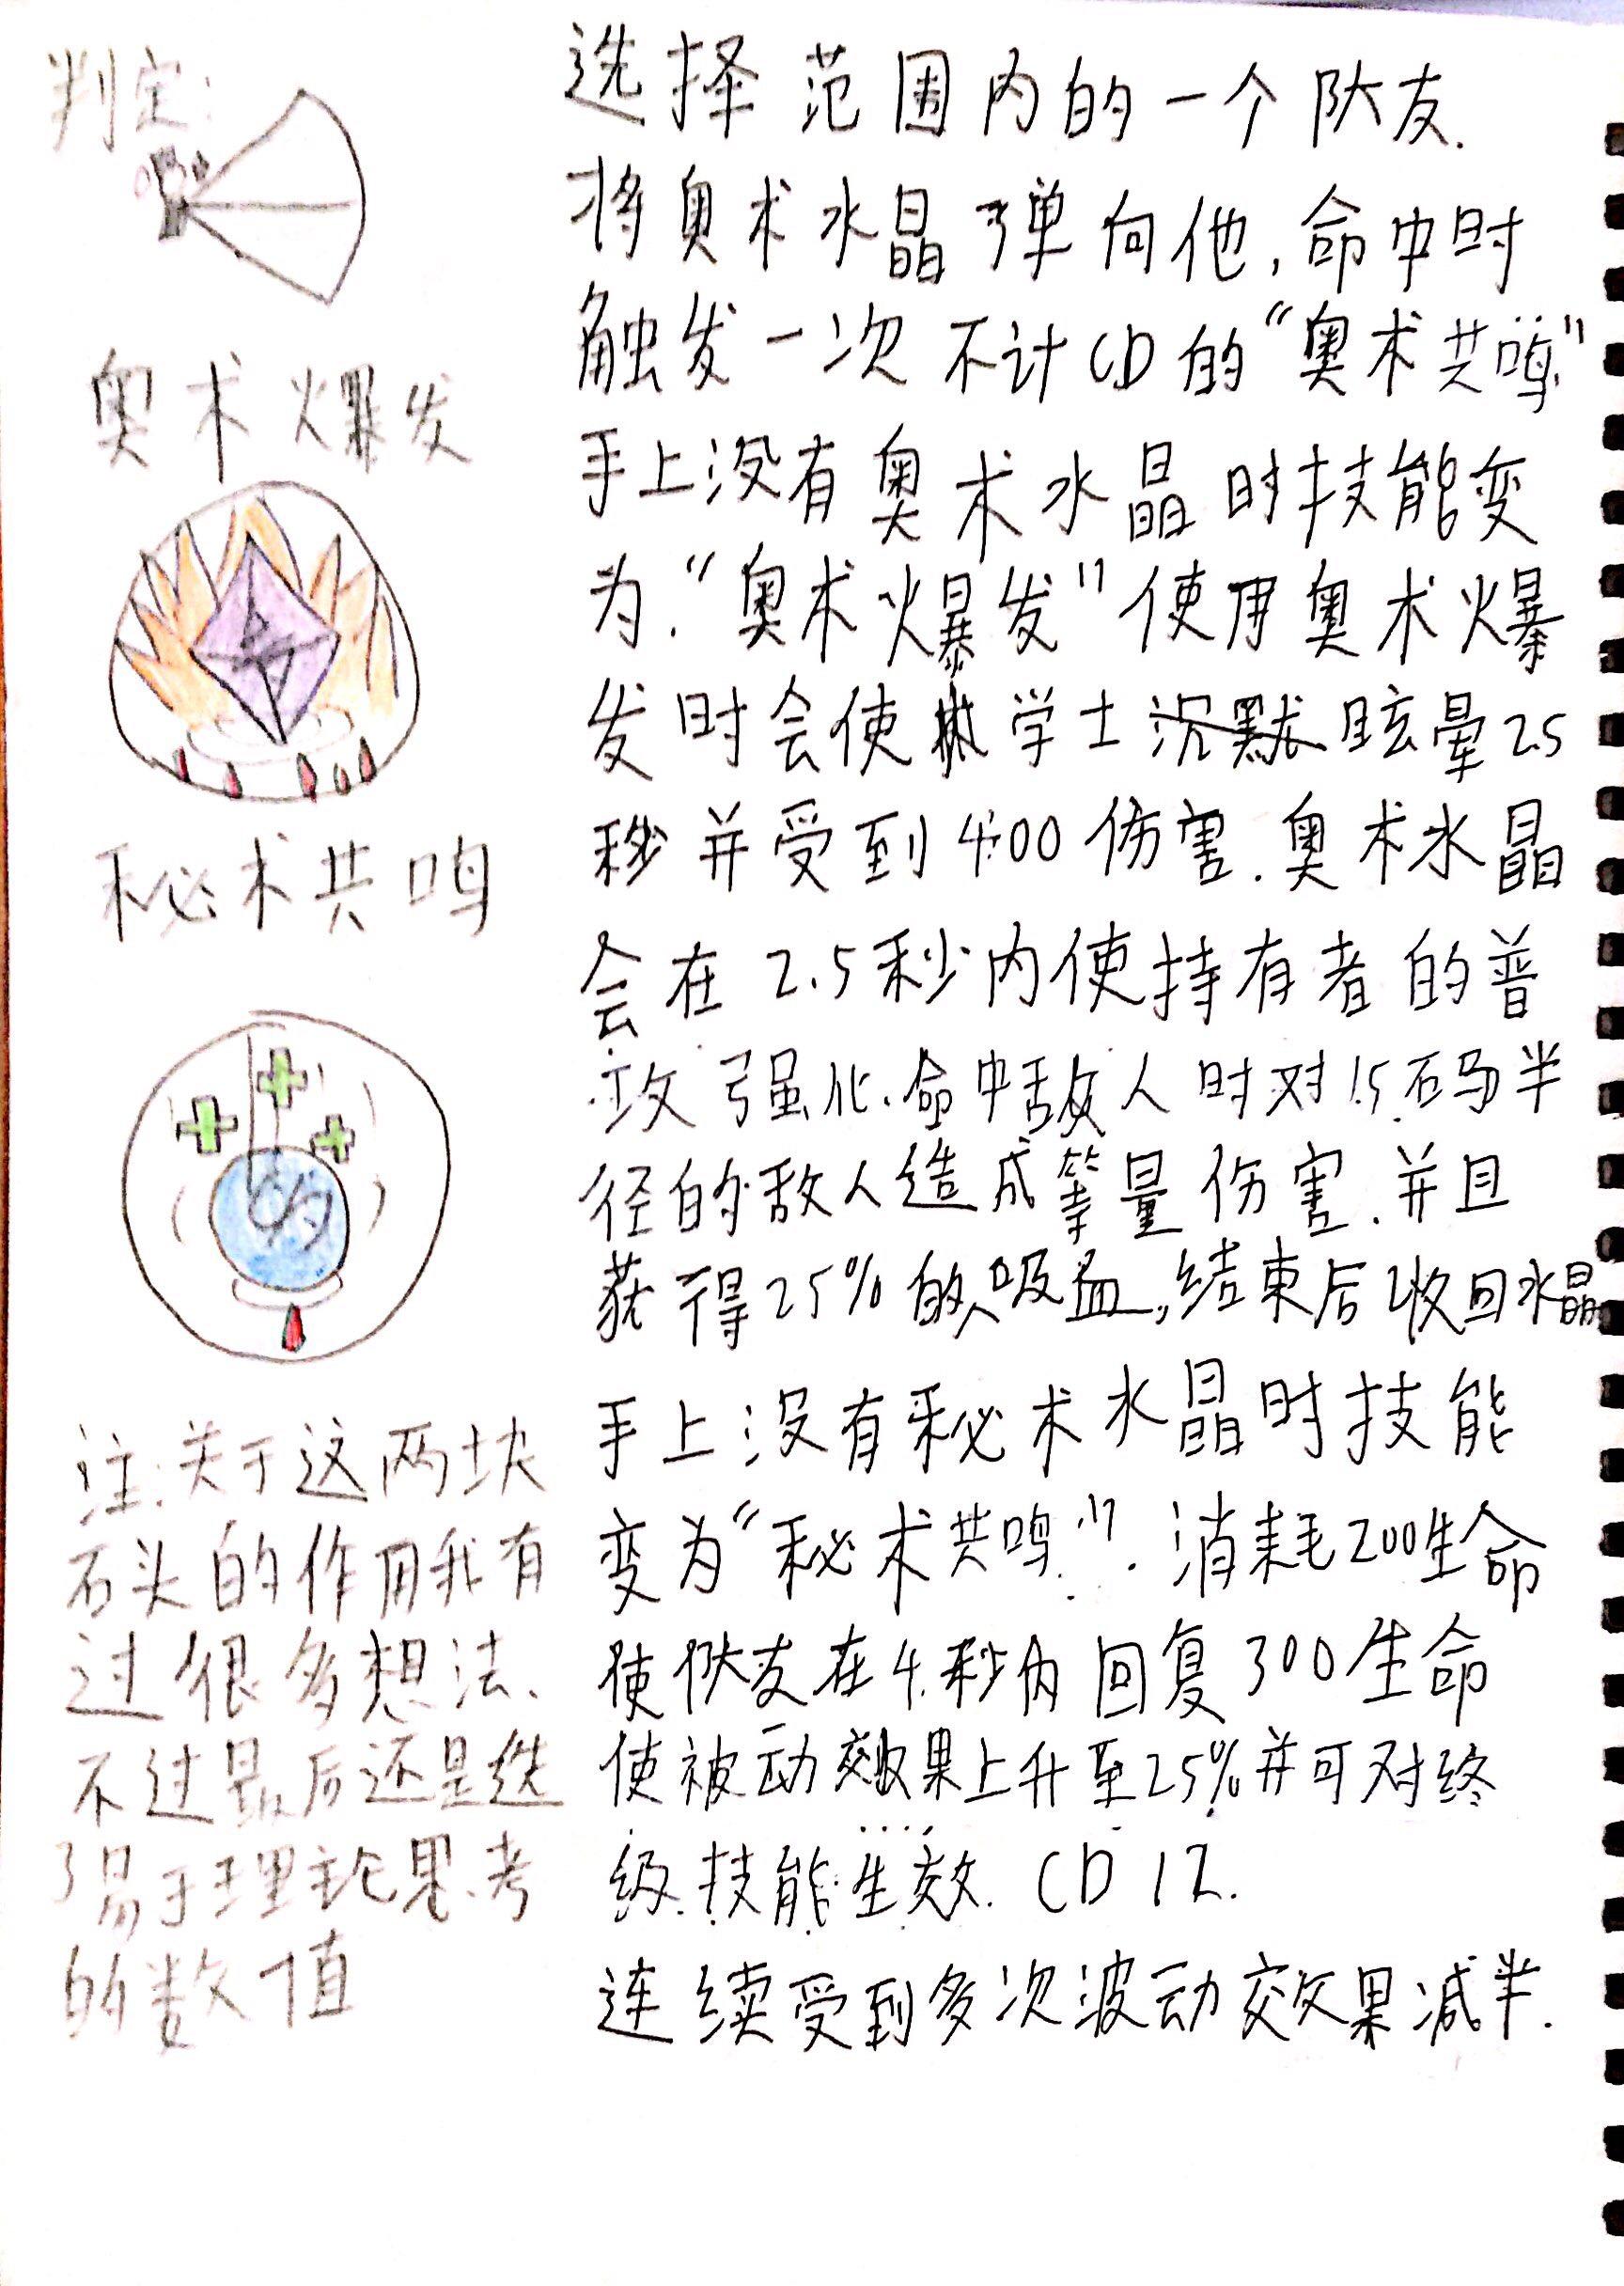 判定:
选择范围内的一个队友.
将奥术水晶弹向他,命中时
触发一次不计CD的“奥术共鸣”
奥术爆发
手上没有奥术水晶时技能变
为.“奥术爆发”使用奥术爆
发时会使学士眩晕2.5
秒并受到400伤害.奥术水晶
秘术共鸣
会在2.5秒内使持有者的普
攻强化.命中敌人时对1.5码半
径的敌人造成等量伤害.并且
获得25%的吸血,结束后收回水晶
手上没有秘术水晶时技能
变为“秘术共鸣”.消耗200生命
使队友在4秒内回复300生命
使被动效果上升至25%并可对终
级技能生效.CD12.
连续受到多次波动效果减半.
注:关于这两块
石头的作用我有
过很多想法、
不过最后还是选
了易于理论思考
的数值